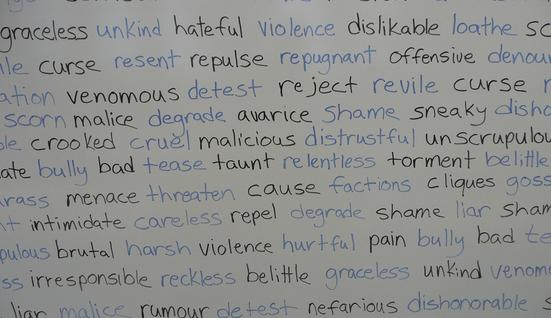 graceless unkind hateful violence dislikable loathe
curse resent repulse repugnant offensive
venomous detest reject revile curse
scorn malice degrade avarice shame sneaky
crooked cruel malicious distrustful
bully bad tease taunt relentless torment belittle
menace threaten cause factions cliques
intimidate careless repel degrade shame liar
brutal harsh violence hurtful pain bully bad
irresponsible reckless belittle graceless unkind
liar malice rumour detest nefarious dishonorable